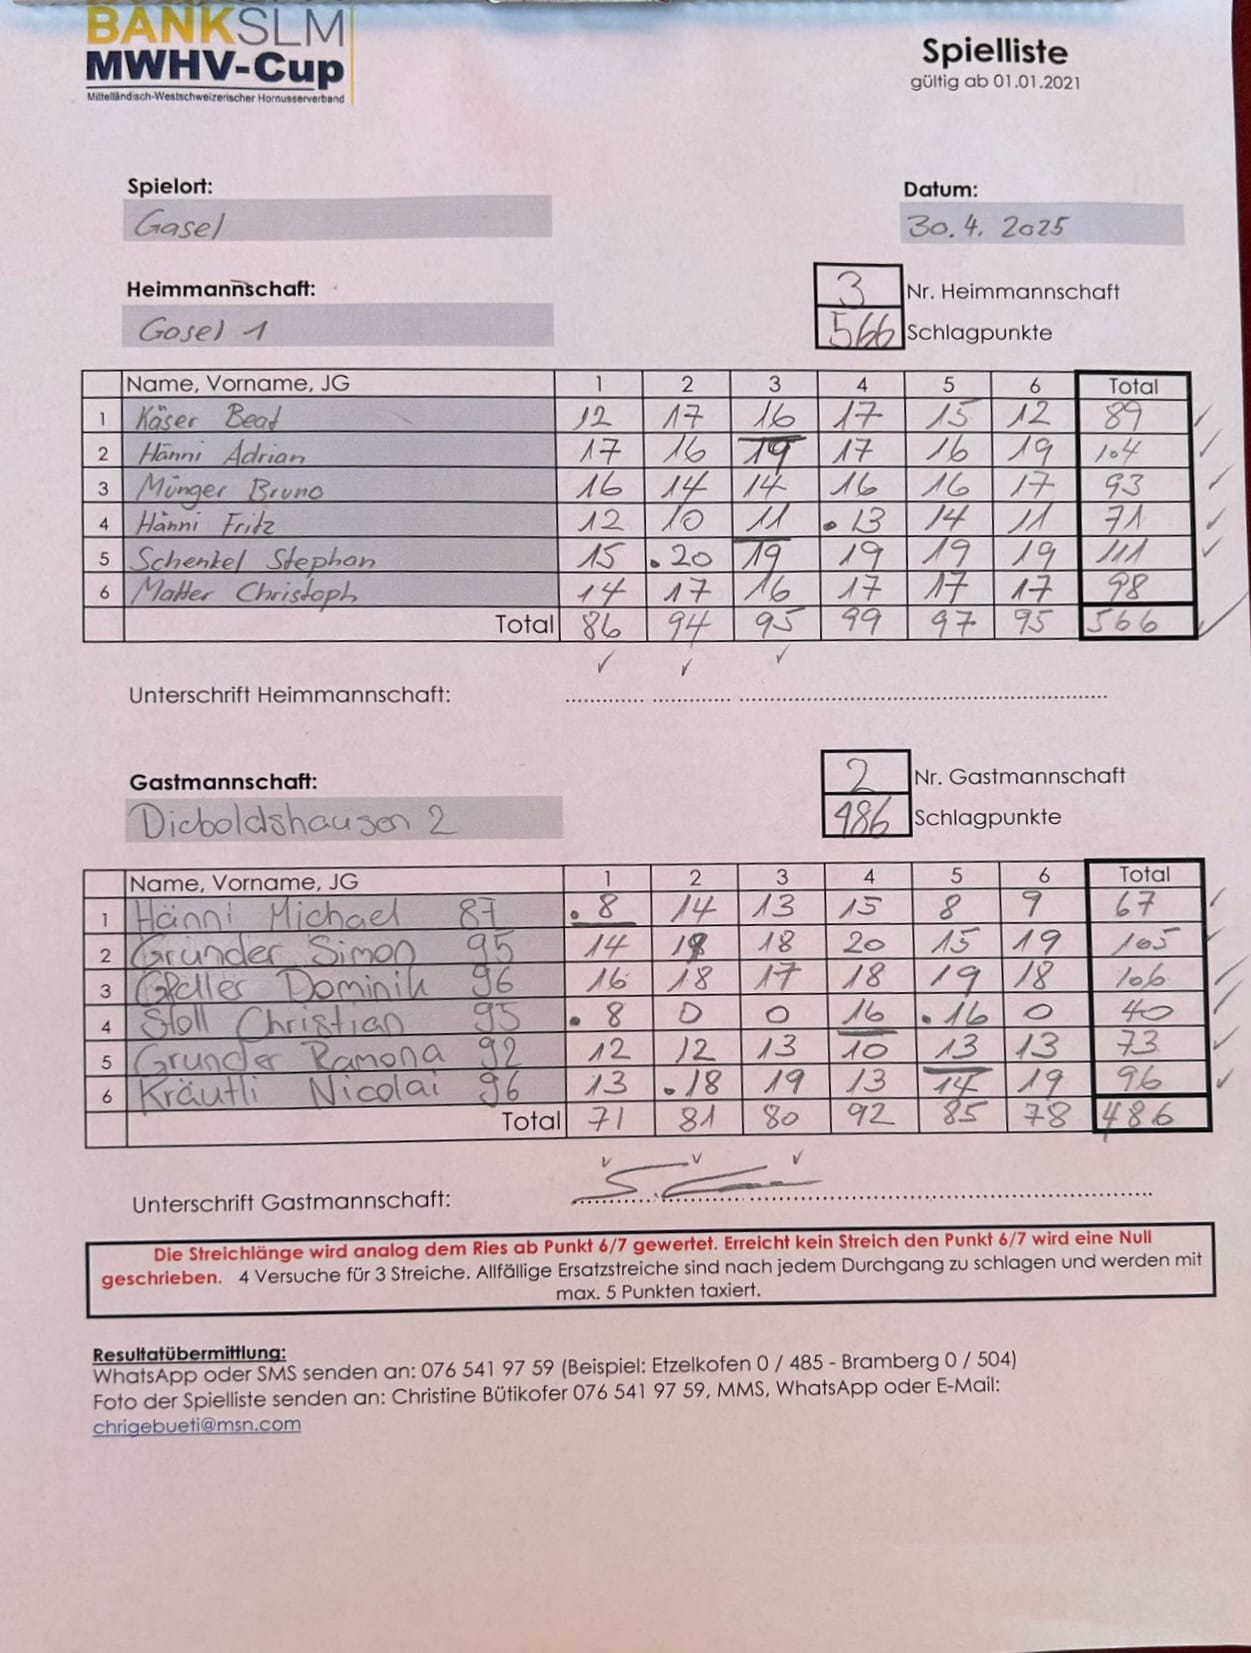 BANKSLM
MWHV-Cup
Mittelländisch-Westschweizerischer Hornusserverband
Spielliste
gültig ab 01.01.2021
Spielort:
Gasel
Datum:
30.4. 2025
Heimmannschaft:
Gasel 1
3 Nr. Heimmannschaft
566 Schlagpunkte
Name, Vorname, JG 1 2 3 4 5 6 Total
1 Käser Beat 12 17 16 17 15 12 89
2 Hänni Adrian 17 16 19 17 16 19 104
3 Münger Bruno 16 14 14 16 16 17 93
4 Hänni Fritz 12 10 11 .13 14 11 71
5 Schenkel Stephan 15 .20 19 19 19 19 111
6 Matter Christoph 14 17 16 17 17 17 98
Total 86 94 95 99 97 95 566
Unterschrift Heimmannschaft:
Gastmannschaft:
Dieboldshausen 2
2 Nr. Gastmannschaft
486 Schlagpunkte
Name, Vorname, JG 1 2 3 4 5 6 Total
1 Hänni Michael 87 .8 14 13 15 8 9 67
2 Gründer Simon 95 14 19 18 20 15 19 105
3 Dominik 96 16 18 17 18 19 18 106
4 Stoll Christian 95 .8 0 0 16 .16 0 40
5 Grunder Ramona 92 12 12 13 10 13 13 73
6 Kräutli Nicolai 96 13 .18 19 13 14 19 96
Total 71 81 80 92 85 78 486
Unterschrift Gastmannschaft:
Die Streichlänge wird analog dem Ries ab Punkt 6/7 gewertet. Erreicht kein Streich den Punkt 6/7 wird eine Null
geschrieben. 4 Versuche für 3 Streiche. Allfällige Ersatzstreiche sind nach jedem Durchgang zu schlagen und werden mit
max. 5 Punkten taxiert.
Resultatübermittlung:
WhatsApp oder SMS senden an: 076 541 97 59 (Beispiel: Etzelkofen 0 / 485 - Bramberg 0 / 504)
Foto der Spielliste senden an: Christine Bütikofer 076 541 97 59, MMS, WhatsApp oder E-Mail:
chrigebueti@msn.com